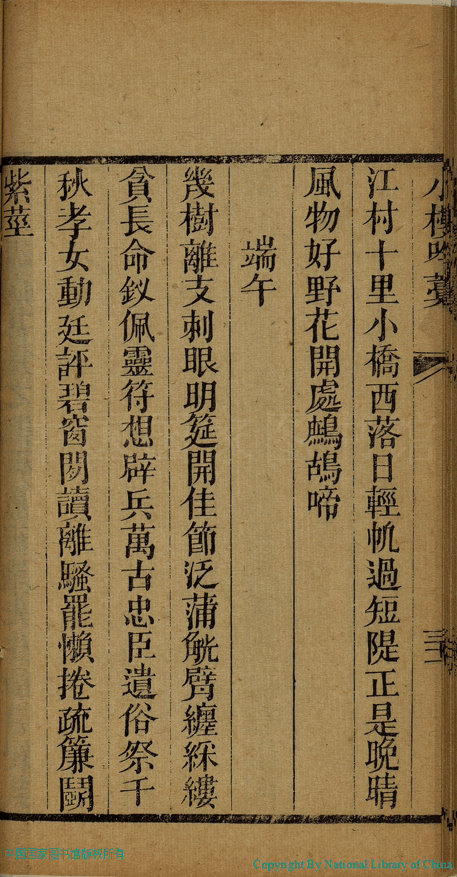 小樓吟藁
三
江村十里小橋西落日輕帆過短隄正是晚晴
風物好野花開處鷓鴣啼
端午
幾樹離支刺眼明筵開佳節泛蒲觥臂纏綵縷
貧長命釵佩靈符想辟兵萬古忠臣遺俗祭千
秋孝女動廷評碧窗閒讀離騷罷懶捲疏簾鬪
紫莖
中國国家图书馆版权所有
Copyright By National Library of China